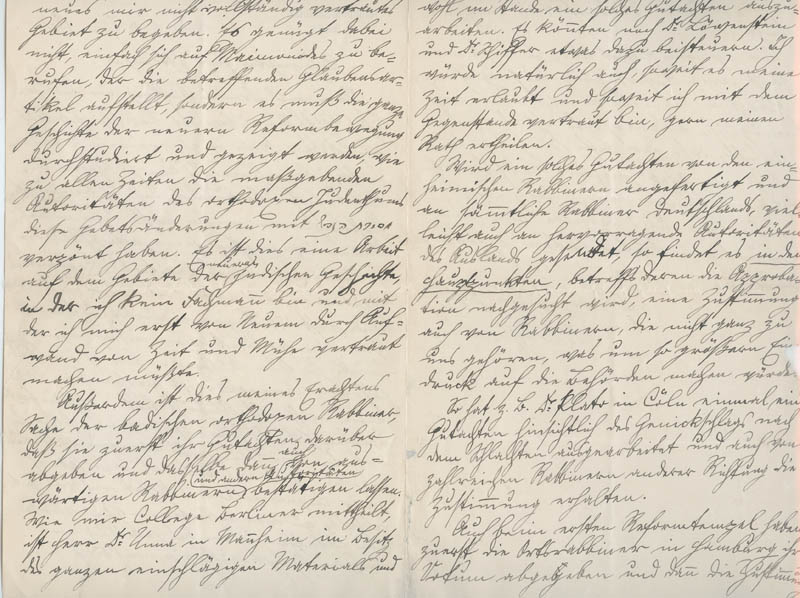 neues mir nicht vollständig vertrautes
Gebiet zu begeben. Es genügt dabei
nicht, einfach sich auf Maimonides zu be-
rufen, der die betreffenden Glaubensar-
tikel aufstellt, sondern es muß die ganze
Geschichte der neuern Reformbewegung
durchstudiert und gezeigt werden, wie
zu allen Zeiten die maßgebenden
Autoritäten des orthodoxen Judenthums
diese Gebetsänderungen mit
verpönt haben. Es ist dies eine Arbeit
auf dem Gebiete der neueren jüdischen Geschichte,
in der ich kein Fachmann bin und mit
der ich mich erst von Neuem durch Auf-
wand von Zeit und Mühe vertraut
machen müßte.
Außerdem ist dies meines Erachtens
Sache der badischen orthodoxen Rabbiner,
daß sie zuerst ihr Gutachten darüber
abgeben und dasselbe dann auch von aus-
wärtigen Rabbinern und anderen Autoritäten bestätigen lassen.
Wie mir College Berliner mittheilt
ist Herr Dr. Unna in Mannheim im Besitz
des ganzen einschlägigen Materials und
wohl im Stande ein solches Gutachten auszu-
arbeiten. Es könnten noch Dr. Löwenstein
und Dr. Schiffer etwas dazu beisteuern. Ich
würde natürlich auch soweit es meine
Zeit erlaubt und soweit ich mit dem
Gegenstande vertraut bin, gern meinen
Rath ertheilen.
Wird ein solches Gutachten von den ein-
heimischen Rabbinern angefertigt und
an sämmtliche Rabbiner Deutschlands, viel
leicht auch an hervorragende Autoritäten
des Auslands gesendet, so findet es in den
Hauptpunkten, betreffs deren die Approba-
tion nachgesucht wird, eine Zustimmung
auch von Rabbinern, die nicht ganz zu
uns gehören, was um so größern Ein
druck auf die Behörden machen würde.
So hat z. B. Dr. Plato in Cöln einmal ein
Gutachten hinsichtlich des Genickschlags nach
dem Schlachten ausgearbeitet und auch von
zahlreichen Rabbinern anderer Richtung die
Zustimmung erhalten.
Auch beim ersten Reformtempel haben
zuerst die Ortsrabbiner in Hamburg ihr
Votum abgegeben und dann die Zustimm